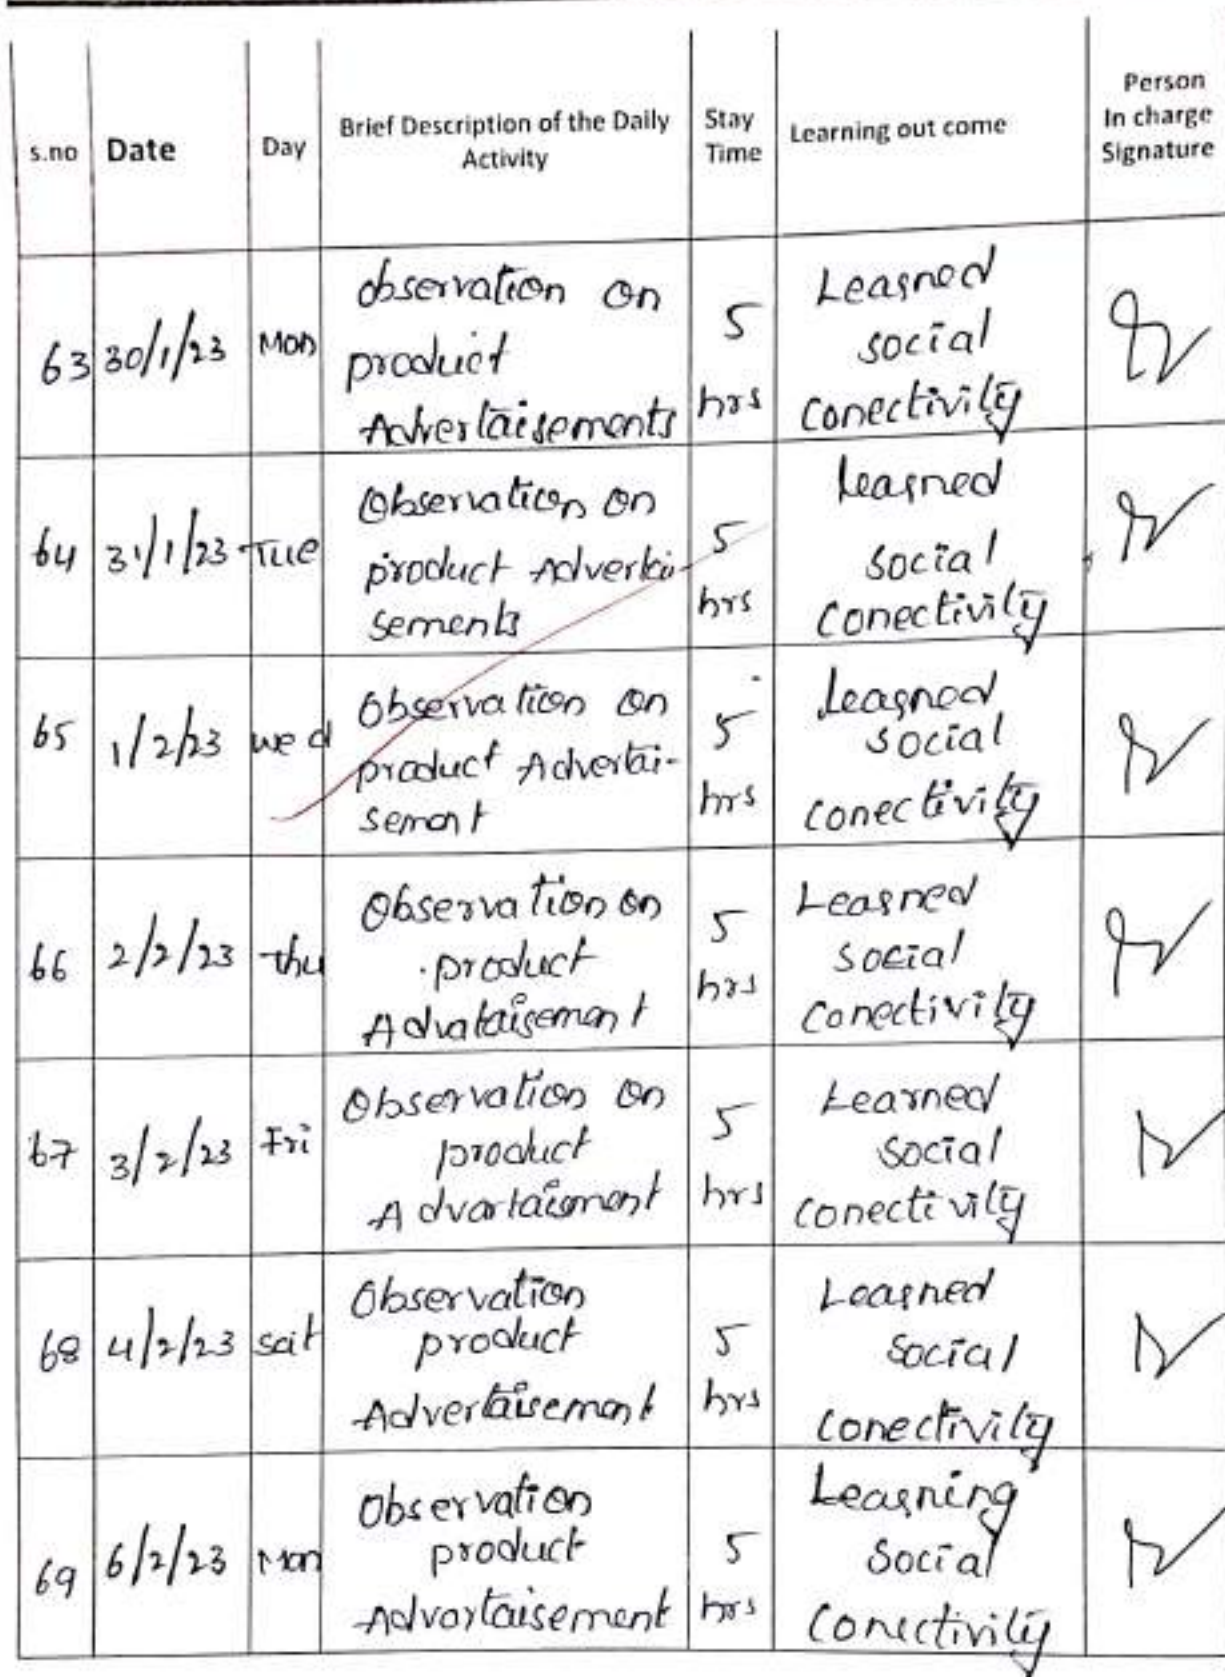 s.no Date Day Brief Description of the Daily Activity Stay Time Learning out come Person In charge Signature
63 30/1/23 Mon observation on
product
Advertaisements
5
hrs
Leasned
social
conectivity
64 31/1/23 Tue Observation on
product Advertai
sements
5
hrs
leasned
social
conectivity
65 1/2/23 wed Observation on
product Advertai-
sement
5
hrs
Leasned
social
conectivity
66 2/2/23 thu Observation on
product
Advataisement
5
hrs
Leasned
social
conectivity
67 3/2/23 Fri Observation on
product
Advartaisment
5
hrs
Learned
social
conectivity
68 4/2/23 sat Observation
product
Advertaisement
5
hrs
Leasned
social
conectivity
69 6/2/23 Mon Observation
product
Advartaisement
5
hrs
Leasning
social
conectivity